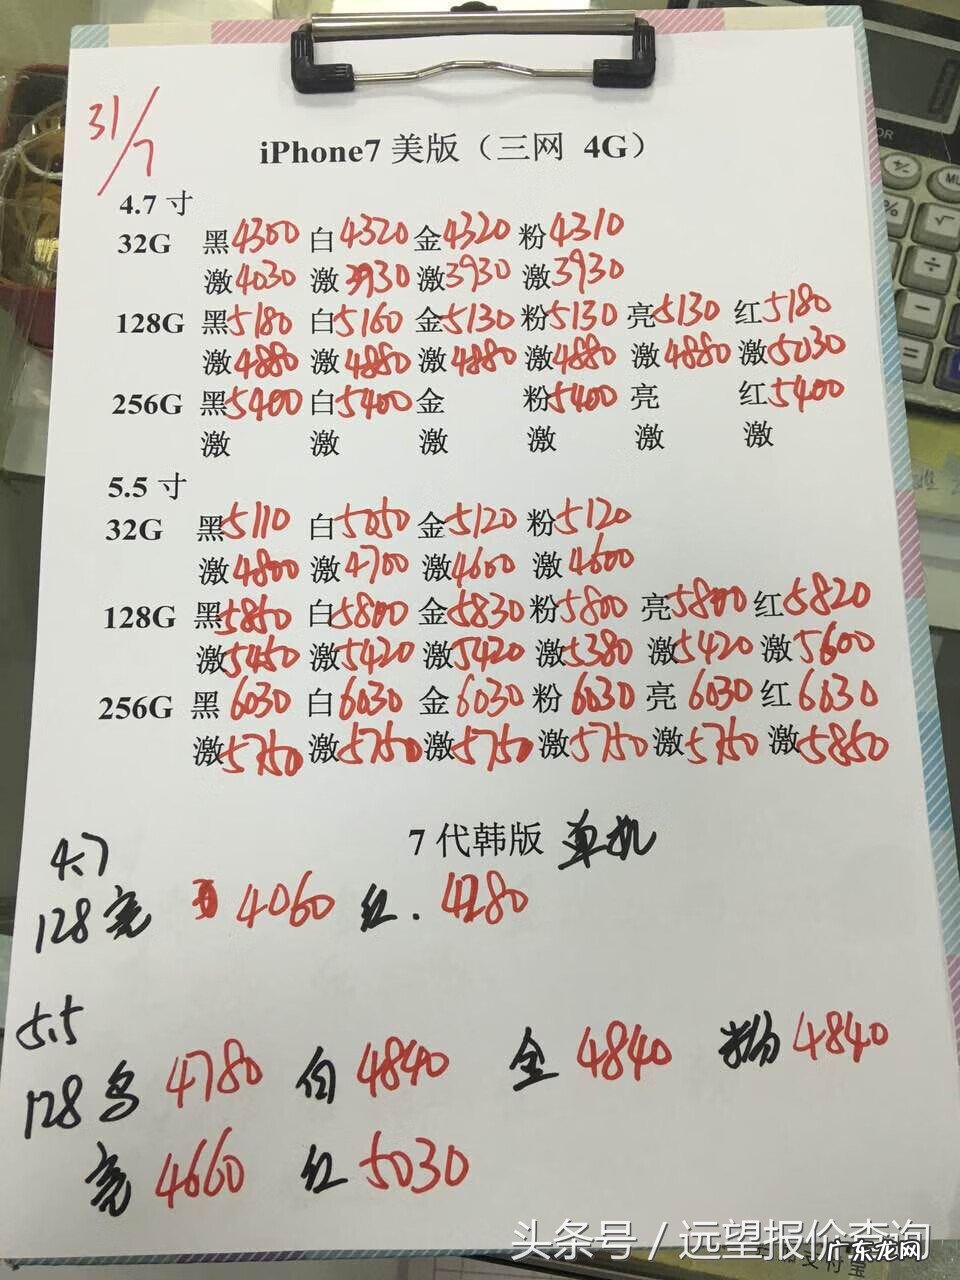 31/7
iPhone7 美版（三网 4G）
4.7 寸
32G 黑4300 白4320 金4320 粉4310
激4030 激3930 激3930 激3930
128G 黑5180 白5160 金5130 粉5130 亮5130 红5180
激4880 激4880 激4880 激4880 激4880 激5030
256G 黑5400 白5400 金 粉5400 亮 红5400
激 激 激 激 激 激
5.5 寸
32G 黑5110 白5050 金5120 粉5120
激4800 激4700 激4600 激4600
128G 黑5850 白5800 金5830 粉5800 亮5800 红5820
激5450 激5420 激5420 激5380 激5420 激5600
256G 黑6030 白6030 金6030 粉6030 亮6030 红6030
激5750 激5750 激5750 激5750 激5750 激5850
7 代韩版 单机
4.7
128 亮 4060 红. 4280
5.5
128 4780 白 4840 金 4840 粉 4840
亮 4660 红 5030
头条号 / 远望报价查询
广东龙网